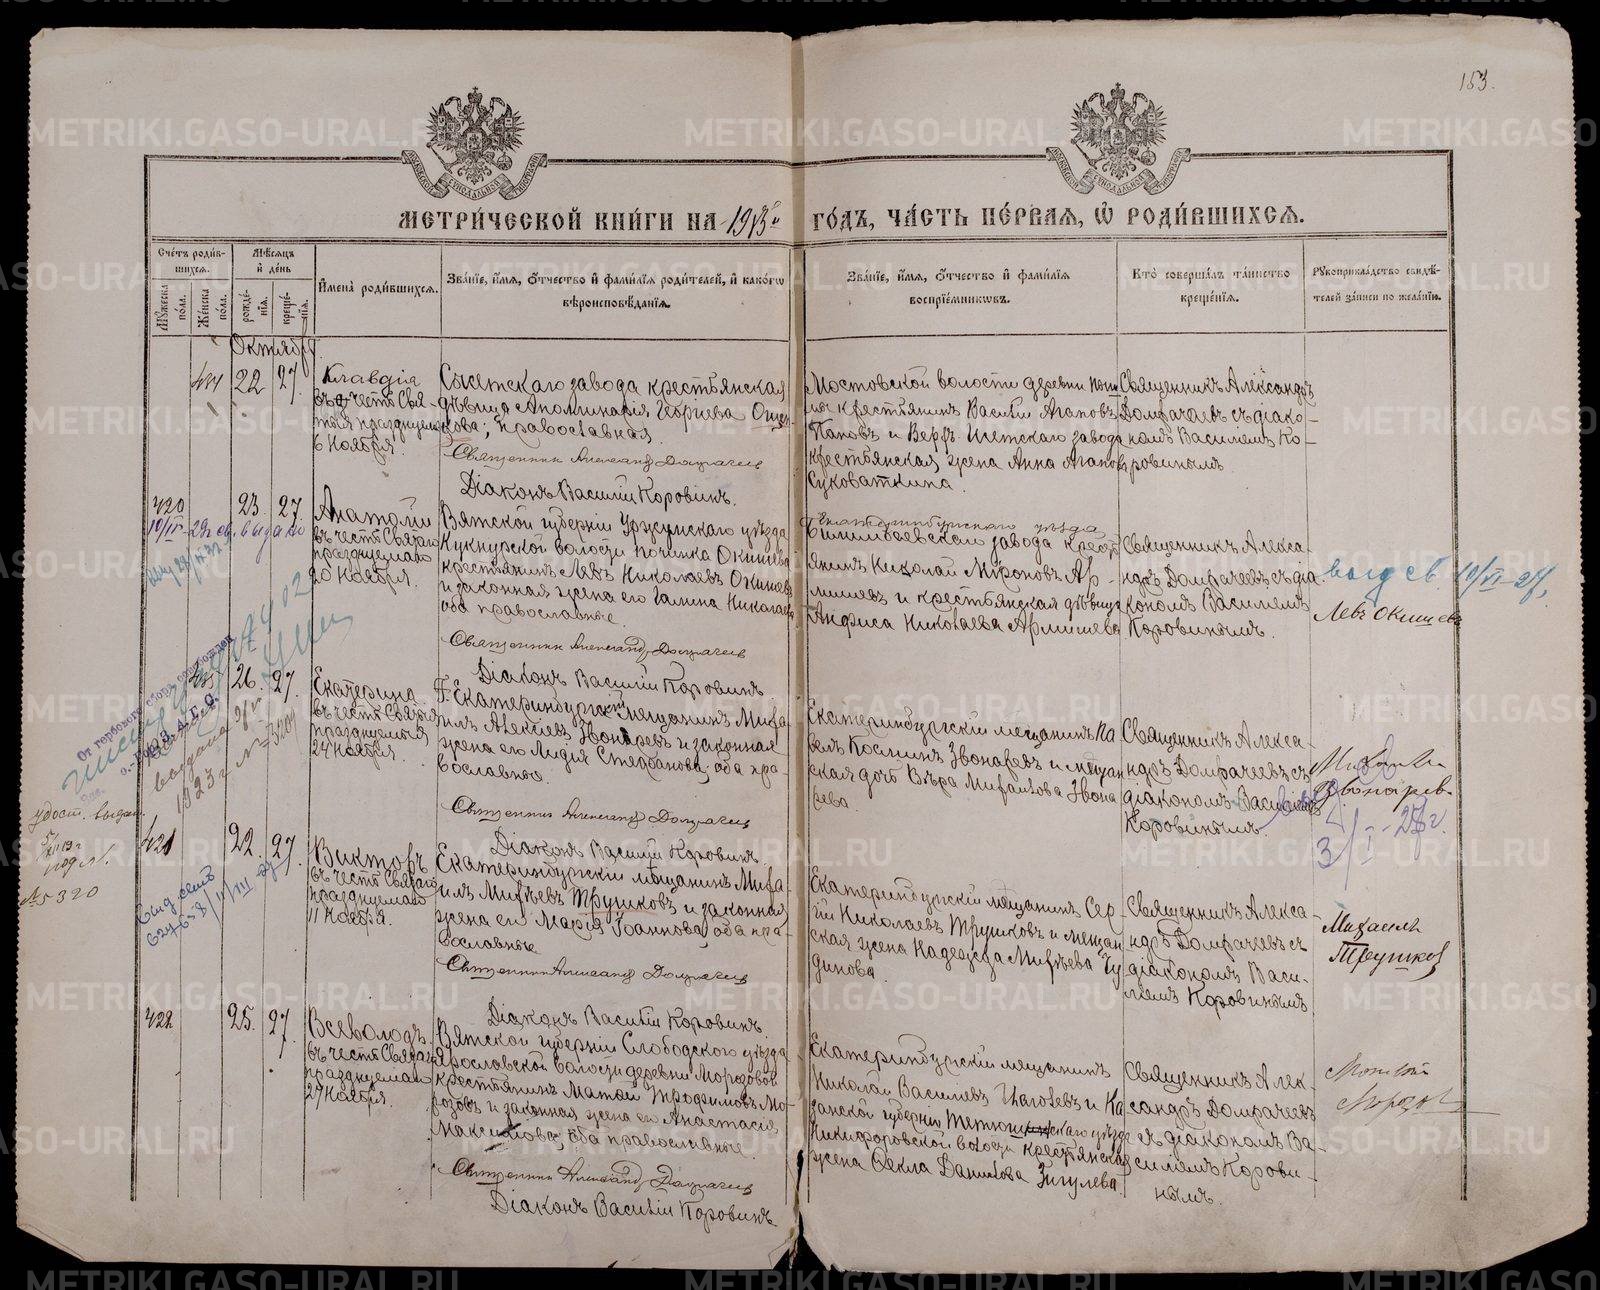 153.
МЕТРИ́ЧЕСКОЙ КНИ́ГИ НА 1913й ГО́ДЪ, ЧА́СТЬ ПЕ́РВАЯ, Ѿ РОДИ́ВШИХСѦ.
Сче́тъ роди́вшихсѧ.
Мѹ́жеска по́ла.
Же́нска по́ла.
Мѣ́сѧцъ и҆ де́нь
рожде́нїѧ.
креще́нїѧ.
И҆мена̀ роди́вшихсѧ.
Зва́нїе, и҆́мѧ, ѻ҆́тчество и҆ фами́лїѧ роди́телей, и҆ како́гѡ
вѣроисповѣ́данїѧ.
Зва́нїе, и҆́мѧ, ѻ҆́тчество и҆ фами́лїѧ
воспрїе́мникѡвъ.
Кто̀ соверша́лъ та́инство
креще́нїѧ.
Рѹкоприкла́дство свидѣ́-
телей за́писи по жела́нїю.
Октябрь
22 27
Клавдія
въ честь Свя-
тыя празднуемыя
6 Ноября.
Сысетскаго завода крестьянская
дѣвица Аполлинарія Георгіева
православная.
Священникъ Александръ Домрачевъ
Діаконъ Василій Коровинъ.
Мостовской волости деревни
крестьянинъ Василій Агаповъ
Поповъ и Верхъ Исетскаго завода
крестьянская жена Анна Агапова
Суковаткина.
Священникъ Александръ
Домрачевъ съ діако-
номъ Василіемъ Ко-
ровинымъ
420 23 27
Анатолій
въ честь Святаго
празднуемаго
20 Ноября.
Вятской губерніи Уржумскаго уѣзда
Кукнурской волости починка Окишева
крестьянинъ Левъ Николаевъ Окишевъ
и законная жена его Галина Николаева
оба православные.
Священникъ Александръ Домрачевъ
Діаконъ Василій Коровинъ
Екатеринбургскаго уѣзда
Билимбаевскаго завода крест
янинъ Николай Мироновъ Ар-
мишевъ и крестьянская дѣвица
Анфиса Николаева Армишева
Священникъ Алекса-
ндръ Домрачевъ съ діа
кономъ Василіемъ
Коровинымъ.
Левъ Окишевъ
26. 27.
Екатерина
въ честь Святыя
празднуемыя
24 Ноября.
Г. Екатеринбургскій мѣщанинъ Миха-
илъ Алексіевъ Звонаревъ и законная
жена его Лидія Стефанова, оба пра-
вославные.
Священникъ Александръ Домрачевъ
Діаконъ Василій Коровинъ
Екатеринбургскій мѣщанинъ Па
велъ Косминъ Звонаревъ и мѣщан
ская дочь Вѣра Михаилова Звона
рева.
Священникъ Алекса-
ндръ Домрачевъ съ
діакономъ Василіемъ
Коровинымъ.
Звонарев
3/I-27г.
выдана
1923 г. № 3207
удост. выдан.
№5320
421 22. 27.
Викторъ
въ честь Святаго
празднуемаго
11 Ноября.
Екатеринбургскій мѣщанинъ Миха-
илъ Михѣевъ Трушковъ и законная
жена его Марія Іоаннова, оба пра-
вославные
Священникъ Александръ Домрачевъ
Діаконъ Василій Коровинъ
Екатеринбургскій мѣщанинъ Сер-
гій Николаевъ Трушковъ и мѣщан
ская жена Надежда Михѣева Чу
динова
Священникъ Алекса-
ндръ Домрачевъ съ
діакономъ Васи-
ліемъ Коровинымъ
Михаилъ
Трушков
422 25. 27.
Всеволодъ
въ честь Святаго
празднуемаго
27 Ноября.
Вятской губерніи Слободского уѣзда
Ярославской волости деревни Морозовой
крестьянинъ Матѳій Трофимовъ Мо-
розовъ и законная жена его Анастасія
Максимова, оба православные.
Священникъ Александръ Домрачевъ
Діаконъ Василій Коровинъ
Екатеринбургскій мѣщанинъ
Николай Василіевъ и Ка
занской губерніи Тетюшскаго уѣзда
Никифоровской волости крестьянская
жена Ѳекла Данилова Зигулева.
Священникъ Алек-
сандръ Домрачевъ
съ діакономъ Ва-
силіемъ Корови-
нымъ.
Морозов
METRIKI.GASO-URAL.RU